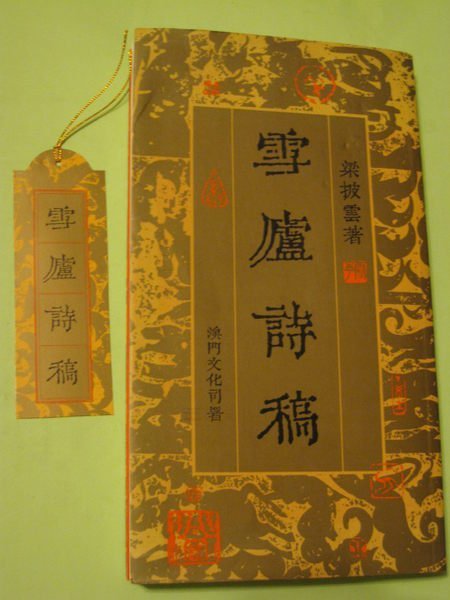 雪廬詩稿
梁披雲著
雪廬詩稿
澳門文化司署